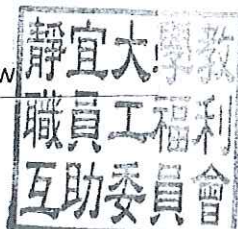 w
靜宜大學教
職員工福利
互助委員會